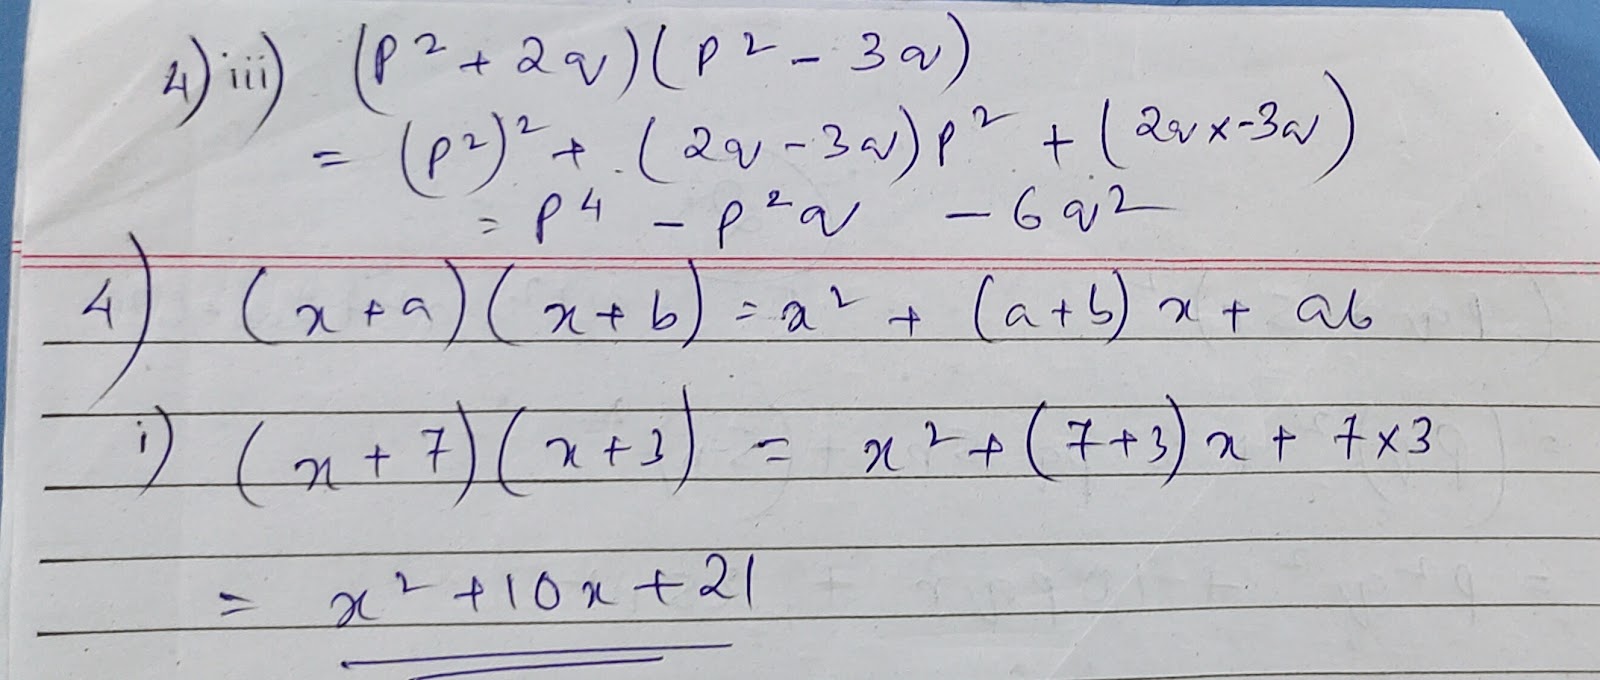 4) iii) (p² + 2q)(p² - 3q)
= (p²)² + (2q - 3q)p² + (2q x -3q)
= p⁴ - p²q - 6q²
4) (x + a)(x + b) = x² + (a + b) x + ab
i) (x + 7)(x + 3) = x² + (7 + 3) x + 7 x 3
= x² + 10x + 21